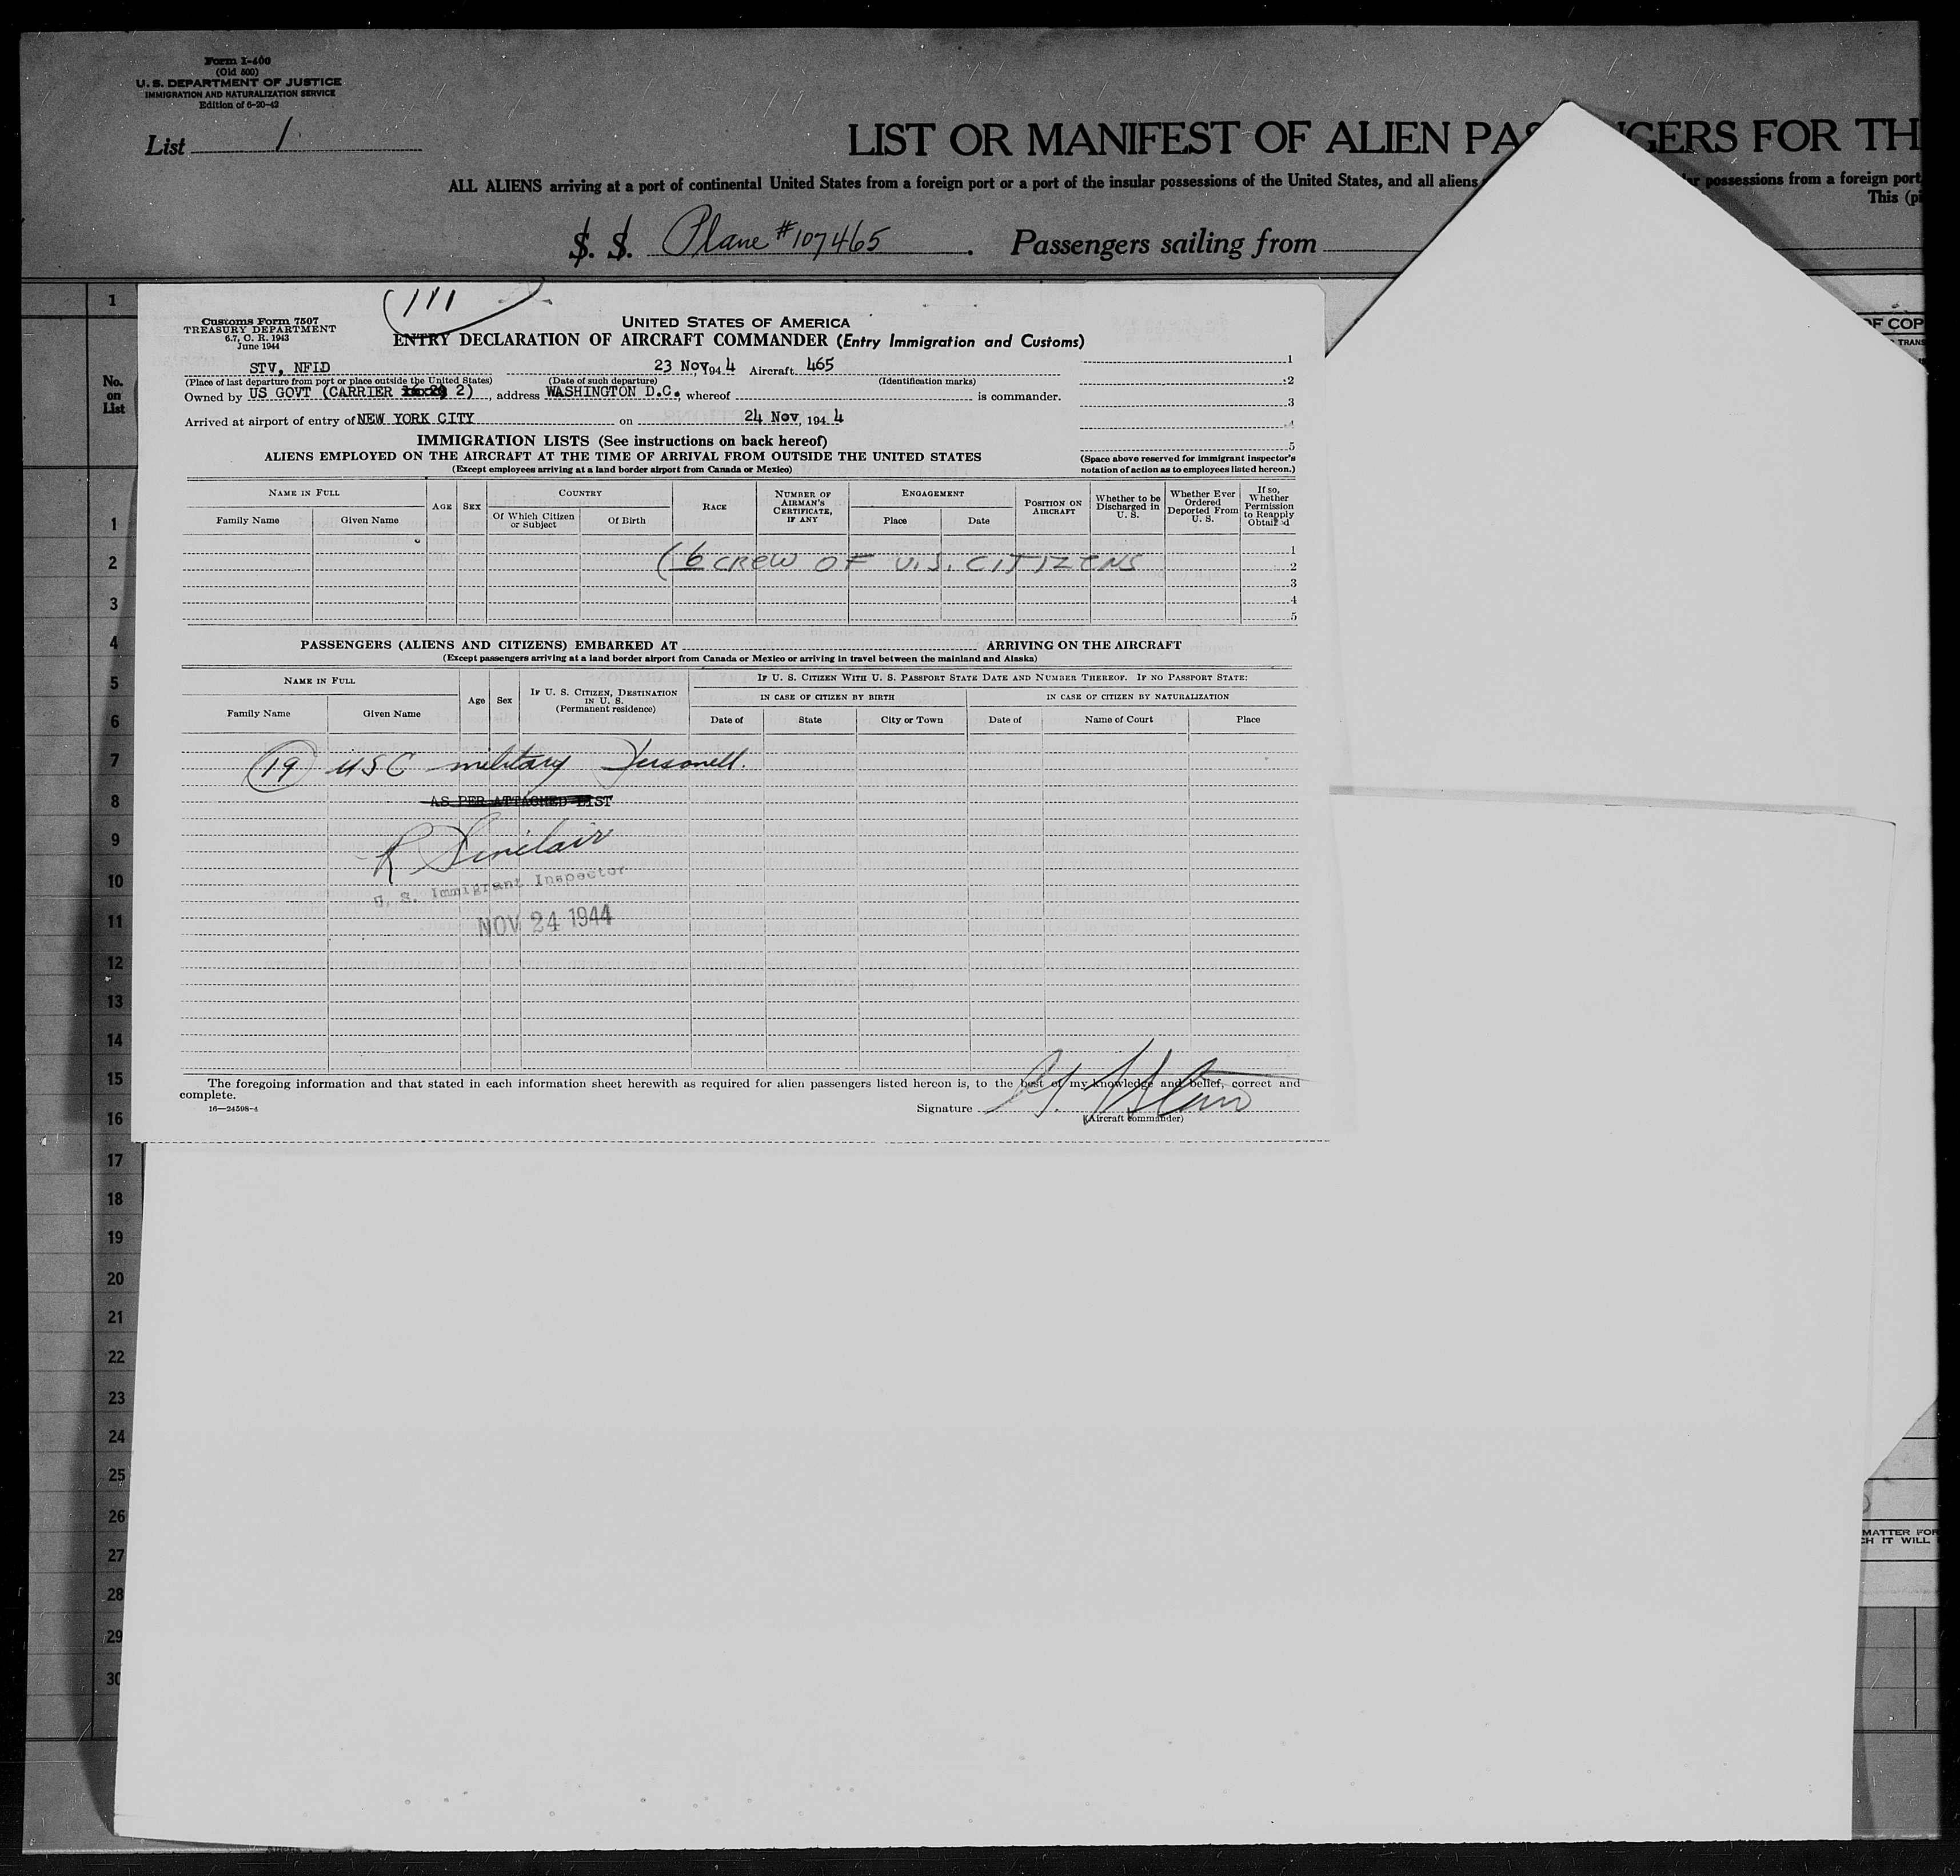 Form I-400
(Old 500)
U. S. DEPARTMENT OF JUSTICE
IMMIGRATION AND NATURALIZATION SERVICE
Edition of 6-20-43
List 1
LIST OR MANIFEST OF ALIEN PAS NGERS FOR TH
ALL ALIENS arriving at a port of continental United States from a foreign port or a port of the insular possessions of the United States, and all aliens possessions from a foreign port
This (pi
S. S. Plane #107465. Passengers sailing from
(111
Customs Form 7507
TREASURY DEPARTMENT
6.7, C. R. 1943
June 1944
UNITED STATES OF AMERICA
ENTRY DECLARATION OF AIRCRAFT COMMANDER (Entry Immigration and Customs)
STV, NFLD 23 Nov, 1944 Aircraft 465
(Place of last departure from port or place outside the United States) (Date of such departure) (Identification marks)
Owned by US GOVT (CARRIER 2), address WASHINGTON D.C., whereof is commander.
Arrived at airport of entry of NEW YORK CITY on 24 Nov, 1944
1
2
3
4
5
IMMIGRATION LISTS (See instructions on back hereof)
ALIENS EMPLOYED ON THE AIRCRAFT AT THE TIME OF ARRIVAL FROM OUTSIDE THE UNITED STATES
(Except employees arriving at a land border airport from Canada or Mexico)
(Space above reserved for immigrant inspector's
notation of action as to employees listed hereon.)
NAME IN FULL
Family Name Given Name
AGE SEX
COUNTRY
Of Which Citizen or Subject Of Birth
RACE
NUMBER OF AIRMAN'S CERTIFICATE, IF ANY
ENGAGEMENT
Place Date
POSITION ON AIRCRAFT
Whether to be Discharged in U. S.
Whether Ever Ordered Deported From U. S.
If so, Whether Permission to Reapply Obtained
(6 CREW OF U.S. CITIZENS
1
2
3
4
5
PASSENGERS (ALIENS AND CITIZENS) EMBARKED AT ARRIVING ON THE AIRCRAFT
(Except passengers arriving at a land border airport from Canada or Mexico or arriving in travel between the mainland and Alaska)
NAME IN FULL
Family Name Given Name
Age Sex
IF U. S. CITIZEN, DESTINATION IN U. S. (Permanent residence)
IF U. S. CITIZEN WITH U. S. PASSPORT STATE DATE AND NUMBER THEREOF. IF NO PASSPORT STATE:
IN CASE OF CITIZEN BY BIRTH IN CASE OF CITIZEN BY NATURALIZATION
Date of State City or Town Date of Name of Court Place
(19) USC military Personell.
AS PER ATTACHED LIST
R Sinclair
U. S. Immigrant Inspector
NOV 24 1944
The foregoing information and that stated in each information sheet herewith as required for alien passengers listed hereon is, to the best of my knowledge and belief, correct and
complete.
16—24598-4
Signature
(Aircraft commander)
No.
on
List
1
1
2
3
4
5
6
7
8
9
10
11
12
13
14
15
16
17
18
19
20
21
22
23
24
25
26
27
28
29
30
OF COP
TRANS
MATTER FOR
CH IT WILL